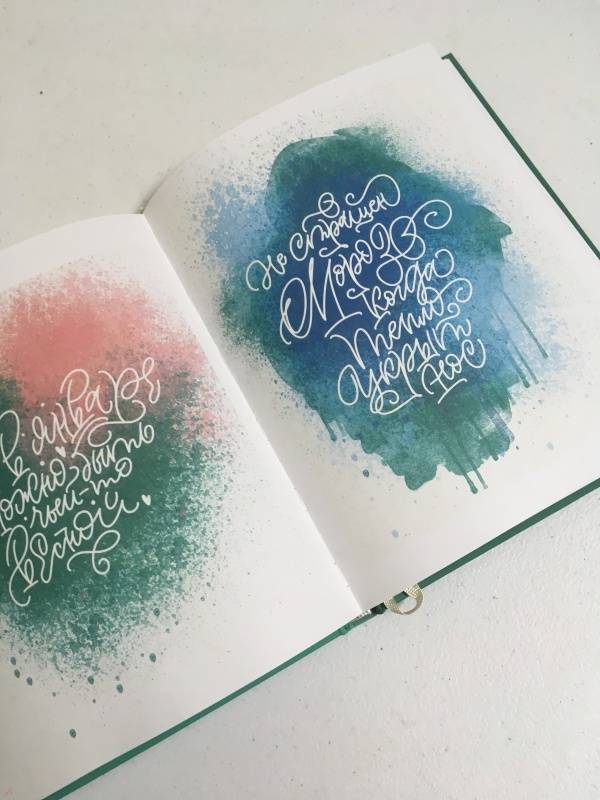 В январе
можно быть
чьей-то
весной
Не страшен
Мороз
когда
тепло
укрыт
нос